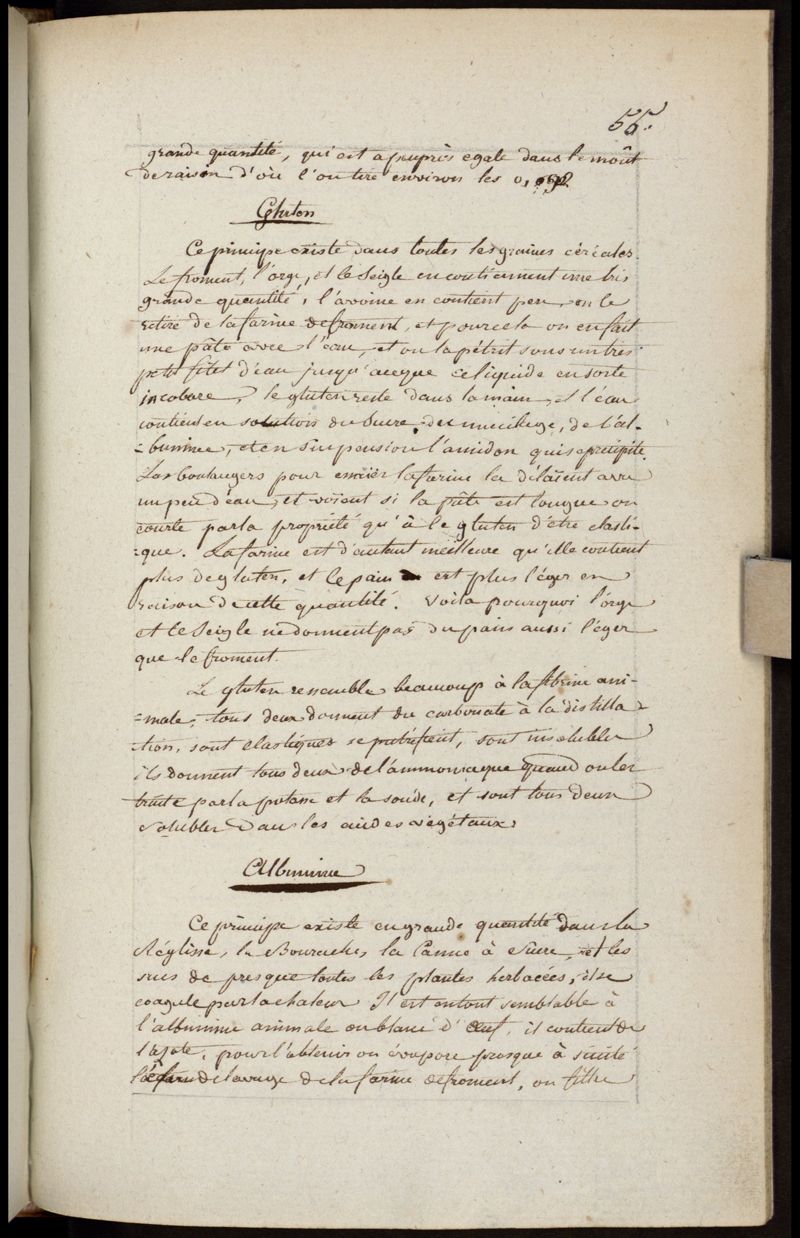 55.
grande quantité, qui est apeuprès egale dans le moût
de raisin d'où l'on tire environ les 0,
Gluten
Ce principe existe dans toutes les graines céréales.
Le froment, l'orge, et le Seigle en contiennent une très
grande quantité, l'avoine en contient peu, on le
retire de la farine de froment, et pour cela on en fait
une pâte avec l'eau, et on la pétrit sous un très
petit filet d'eau jusqu'aceque ce liquide en sorte
incolore, le gluten reste dans la main, et l'eau
contient en solution du Sucre, du mucilage, de l'al-
-bumine, et en suspension l'amidon qui se précipite.
Les boulangers pour essaier la farine la délaient avec
un peu d'eau, et voient si la pâte est longue ou
courte par la propriété qu'à le gluten d'être elasti-
-que. La farine est d'autant meilleure qu'elle contient
plus de gluten, et le pain est plus léger en
raison de cette quantité. Voila pourquoi l'orge
et le Seigle ne donnent pas du pain aussi léger
que le froment.
Le gluten ressemble beaucoup à la fibrine ani-
-male, tous deux donnent du carbonate à la distilla-
-tion, sont elastiques se putréfient, sont insolubles
ils donnent tous deux de l'ammoniaque quand on les
traite par la potasse et la soude, et sont tous deux
solubles dans les acides végétaux.
Albumine
Ce principe existe en grande quantité dans la
Réglisse, la Bourache, la Canne à Sucre, et les
sucs de presque toutes les plantes herbacées, il se
coagule par la chaleur Il est entout semblable à
l'albumine animale ou blanc d'oeuf, il contient de
l'azote, pour l'obtenir on évapore presque à siccité
l'eau de lavage de la farine de froment, on filtre